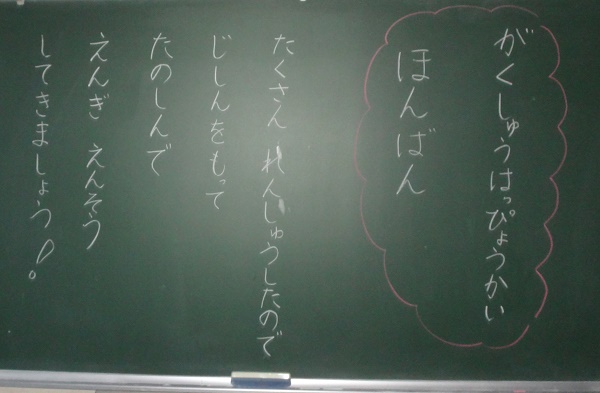 がくしゅうはっぴょうかい
ほんばん
たくさん れんしゅうしたので
じしんをもって
たのしんで
えんぎ えんそう
してきましょう!。